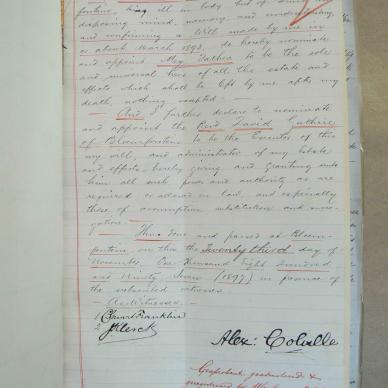 fontein, being ill in body but of sound and
disposing mind, memory and understanding,
and confirming a Will made by me in
or about March 1893, do hereby nominate
and appoint My Father to be the sole
and universal heir of all the estate and
effects which shall be left by me after my
death, nothing excepted. —
— And I further declare to nominate
and appoint the Revd David Guthrie
of Bloemfontein to be the Executor of this
my will, and administrator of my Estate
and effects, hereby giving and granting unto
him all such power and authority as are
required or allowed in law, and especially
those of assumption substitution and surro-
gation. —
— Thus done and passed at Bloem-
fontein on this the Twenty third day of
November One thousand Eight Hundred
and Ninety Seven (1897) in presence of
the undersigned witnesses.
— As Witnesses. —
1 Franklin
2
Alex: Colville